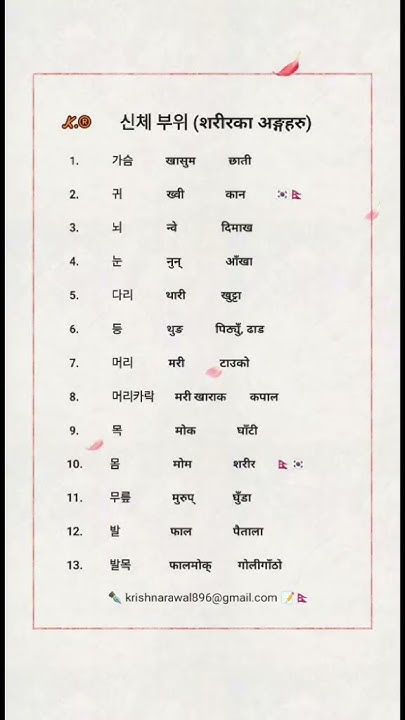 K.® 신체 부위 (शरीरका अङ्गहरु)
1. 가슴 खासुम छाती
2. 귀 ख्वी कान 🇰🇷🇳🇵
3. 뇌 न्वे दिमाख
4. 눈 नुन् आँखा
5. 다리 थारी खुट्टा
6. 등 थुङ पिठ्युँ, ढाड
7. 머리 मरी टाउको
8. 머리카락 मरी खाराक कपाल
9. 목 मोक घाँटी
10. 몸 मोम शरीर 🇳🇵🇰🇷
11. 무릎 मुरुप् घुँडा
12. 발 फाल पैताला
13. 발목 फालमोक् गोलीगाँठो
✒️ krishnarawal896@gmail.com 📝🇳🇵